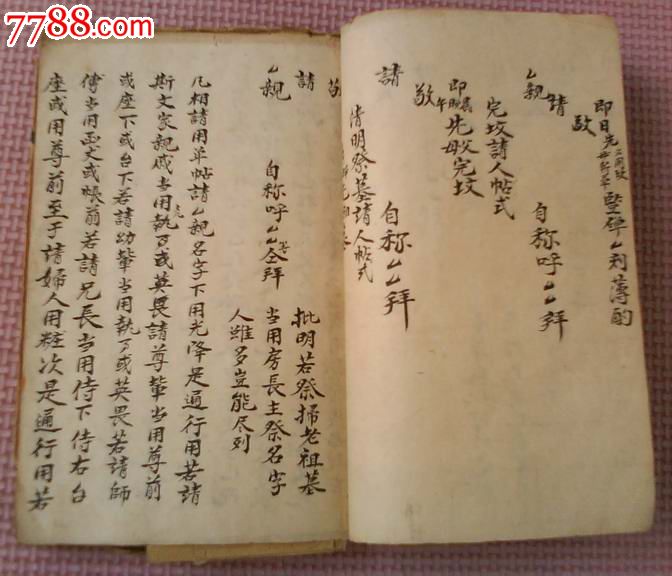 7788.com
即日先豎碑厶刻薄酌
敬
請
厶親
自称呼厶厶拜
完坟請人帖式
即午先母父完坟
敬
請
自称厶厶拜
清明祭墓請人帖式
敬
請
厶親
自称呼厶厶仝拜
批明若祭掃老祖墓
当用房長主祭名字
人雖多豈能尽列
凡相請用单帖請厶親名字下用光降是通行用若請
斯文家親戚当用執丂或英畏請尊輩当用尊前
或座下或台下若請幼輩当用執丂或英畏若請師
傅当用函丈或帳前若請兄長当用侍下侍右台
座或用尊前至于請婦人用粧次是通行用若